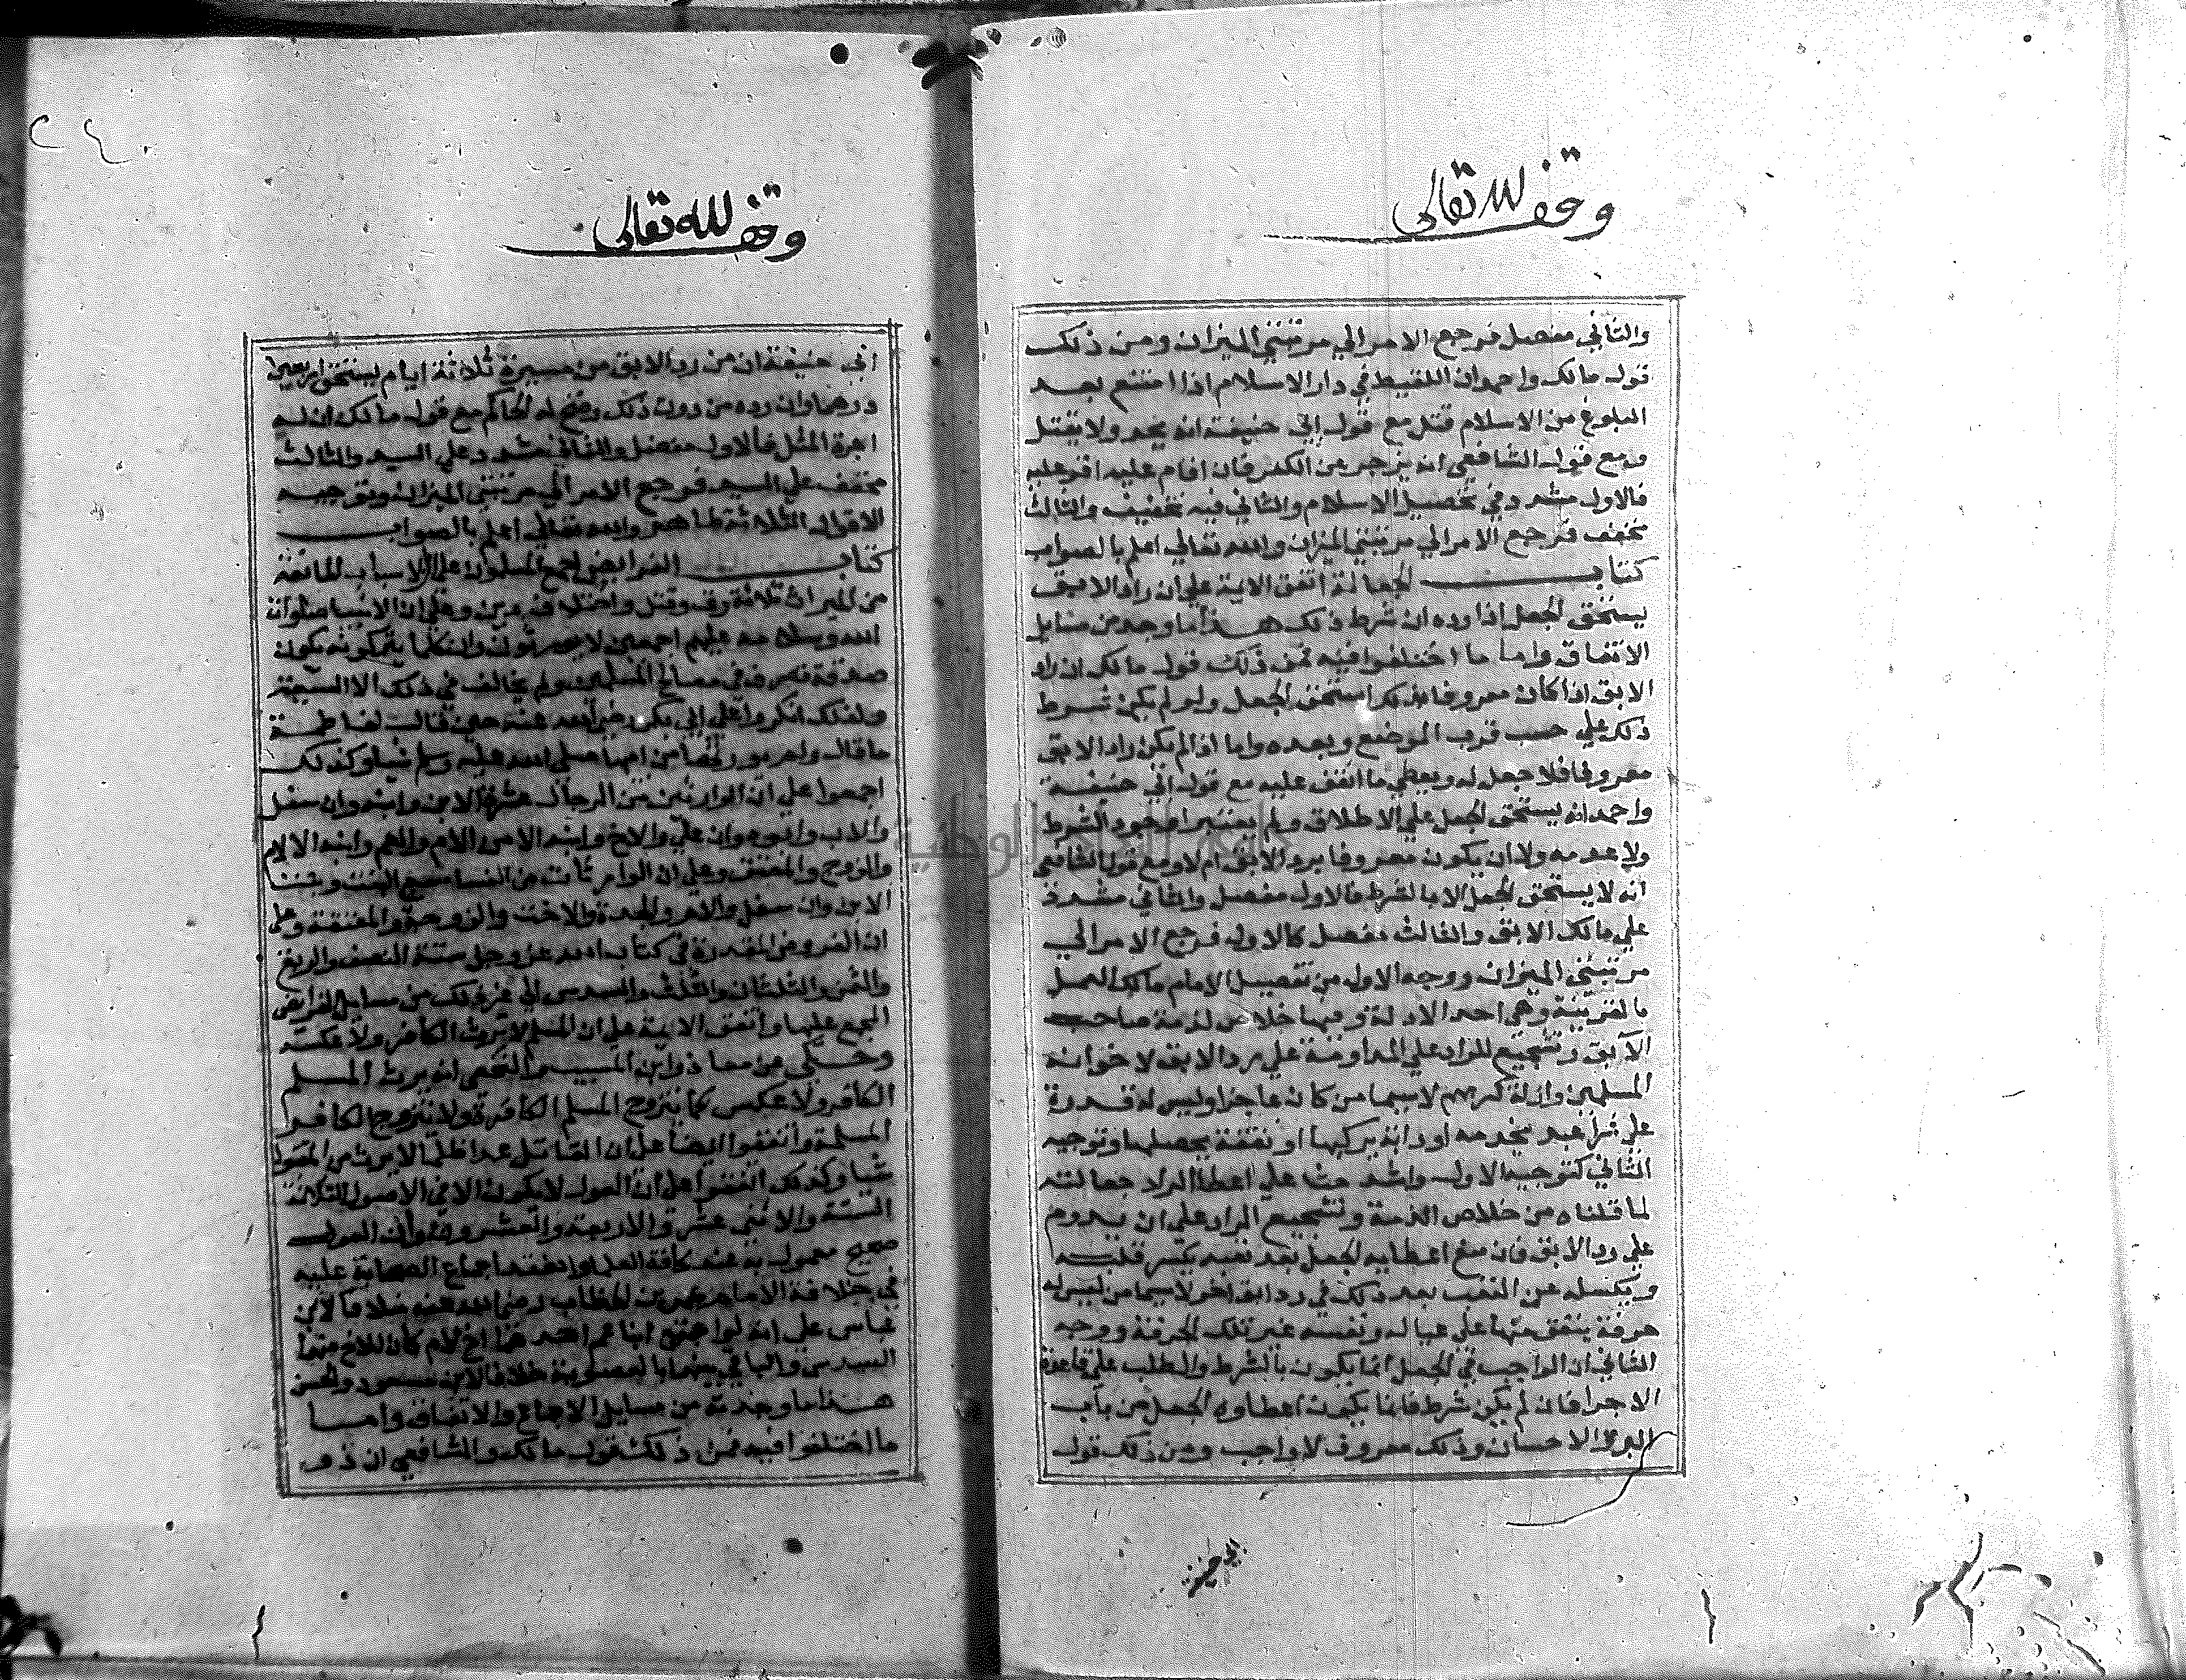 وقف لله تعالى
والثاني مفصل فرجع الامر الي مرتبتي الميزان ومن ذلك
قول مالك واحمد ان اللقيط في دار الاسلام اذا امتنع بعد
البلوغ من الاسلام قتل مع قول ابي حنيفة انه يحد ولا يقتل
ومع قول الشافعي انه يزجر عن الكفر فان اقام عليه اقر عليه
فالاول مشدد في تحصيل الاسلام والثاني فيه تخفيف والثالث
مخفف فرجع الامر الي مرتبتي الميزان والله تعالي اعلم بالصواب
كتاب الجعالة اتفق الايمة علي ان راد الابق
يستحق الجعل اذا رده ان شرط ذلك هذا ما وجد من مسايل
الاتفاق واما ما اختلفوا فيه فمن ذلك قول مالك ان راد
الابق اذا كان معروفا بذلك استحق الجعل ولو لم يكن شرط
ذلك علي حسب قرب الموضع وبعده واما اذا لم يكن راد الابق
معروفا فلا جعل له ويعطي ما انفق عليه مع قول ابي حنيفة
واحمد انه يستحق الجعل علي الاطلاق ولم يعتبرا وجود الشرط
ولا عدمه ولا ان يكون معروفا برد الابق ام لا ومع قول الشافعي
انه لا يستحق الجعل الا بالشرط فالاول مفصل والثاني مشدد
علي مالك الابق والثالث مفصل كالاول فرجع الامر الي
مرتبتي الميزان ووجه الاول من تفصيل الامام مالك العمل
بالقرينة وهي احد الادلة وفيها خلاص لذمة صاحب
الآبق وتشجيع للراد علي المداومة علي رد الابق لاخوانه
المسلمين وازلة كربهم لاسيما من كان عاجزا وليس له قدرة
علي شرا عبد يخدمه او دابة يركبها او نفقة يحصلها وتوجيه
الثاني كتوجيه الاول واشد حثا علي اعطا الراد جعالته
لما قلناه من خلاص الذمة وتشجيع الراد علي ان يدوم
علي رد الابق فان منع اعطايه الجعل بعد تعبه يكسر قلبه
ويكسله عن التعب بعد ذلك في رد ابق اخر لاسيما من ليس له
حرفة ينفق منها علي عياله ونفسه غير تلك الحرفة ووجه
الثاني ان الواجب في الجعل انما يكون بالشرط والطلب علي قاعدة
الاجرا فان لم يكن شرط فانما يكون اعطاوه الجعل من باب
البر والاحسان وذلك معروف لا واجب ومن ذلك قول
ابي حنيفة
وقف لله تعالى
ابي حنيفة ان من رد الابق من مسيرة ثلاثة ايام يستحق اربعين
درهما وان رده من دون ذلك رضخ له الحاكم مع قول مالك ان له
اجرة المثل فالاول مفصل والثاني مشدد علي السيد والثالث
مخفف علي السيد فرجع الامر الي مرتبتي الميزان وتوجيه
الاقوال الثلاثة ظاهر والله تعالي اعلم بالصواب
كتاب الفرايض اجمع المسلمون علي ان الاسباب المانعة
من الميراث ثلاثة رق وقتل واختلاف دين وعلي ان الانبيا صلوات
الله وسلامه عليهم اجمعين لا يورثون وان كلما يتركونه يكون
صدقة تصرف في مصالح المسلمين ولم يخالف في ذلك الا الشيعة
ولذلك انكروا علي ابي بكر رضي الله عنه حين قال لفاطمة
ما قال ولم يورثها من ابيها صلي الله عليه وسلم شيا وكذلك
اجمعوا علي ان الوارثين من الرجال عشرة الابن وابنه وان سفل
والاب وابوه وان علي والاخ وابنه الا من الام والعم وابنه الا للام
والزوج والمعتق وعلي ان الوارثات من النسا سبع البنت وبنت
الابن وان سفل والام والجدة والاخت والزوجة والمعتقة وعلي
ان الفروض المقدرة في كتاب الله عز وجل ستة النصف والربع
والثمن والثلثان والثلث والسدس الي غير ذلك من مسايل الفرايض
المجمع عليها واتفق الايمة علي ان المسلم لا يرث الكافر ولا عكسه
وحكي عن معاذ وابن المسيب والنخعي انه يرث المسلم
الكافر ولا عكس كما يتزوج المسلم الكافرة ولا يتزوج الكافر
المسلمة واتفقوا ايضا علي ان القاتل عمدا ظلما لا يرث من المقتول
شيا وكذلك اتفقوا علي ان العول لا يكون الا في الاصول الثلاثة
الستة والاثني عشرة والاربعة والعشرون وان العول
صحيح معمول به عند كافة العلما وانعقد اجماع الصحابة عليه
في خلافة الامام عمر بن الخطاب رضي الله عنه خلافا لابن
عباس علي انه لو اجتمع ابنا عم احدهما اخ لام كان للاخ منهما
السدس والباقي بينهما بالعصوبة خلافا لابن مسعود والحسن
هذا ما وجدته من مسايل الاجماع والاتفاق واما
ما اختلفوا فيه فمن ذلك قول مالك والشافعي ان ذوي